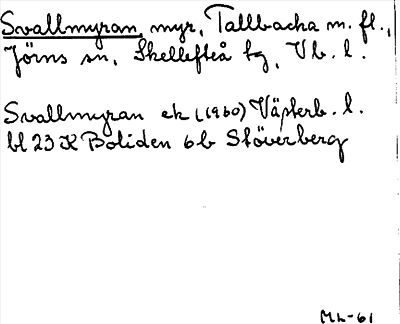 Svallmyran, myr, Tallbacka m. fl.,
Jörns sn, Skellefteå tg, Vb. l.
Svallmyran ek (1960) Västerb. l.
bl 23 K Boliden 6b Stöverberg
ML-61